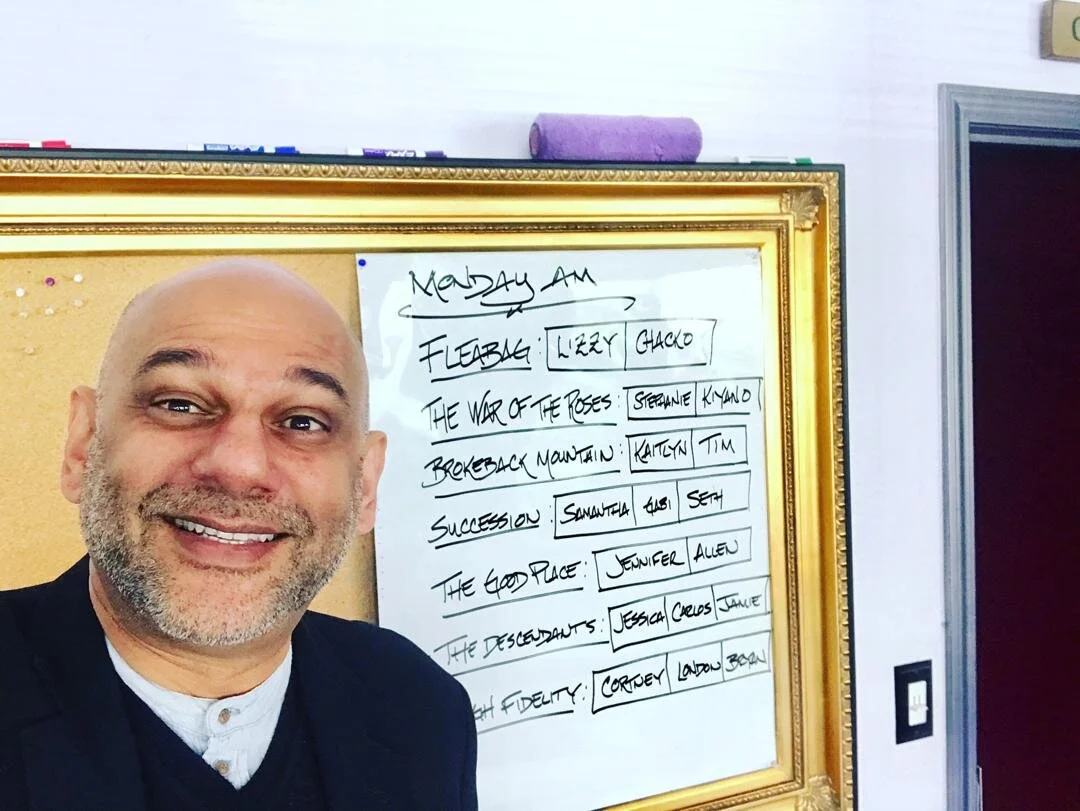 MONDAY AM
FLEABAG: LIZZY CHACKO
THE WAR OF THE ROSES: STEPHANIE KIYANO
BROKEBACK MOUNTAIN: KAITLYN TIM
SUCCESSION: SAMANTHA GABI SETH
THE GOOD PLACE: JENNIFER ALLEN
THE DESCENDANTS: JESSICA CARLOS JAMIE
GH FIDELITY: CORTNEY LONDON